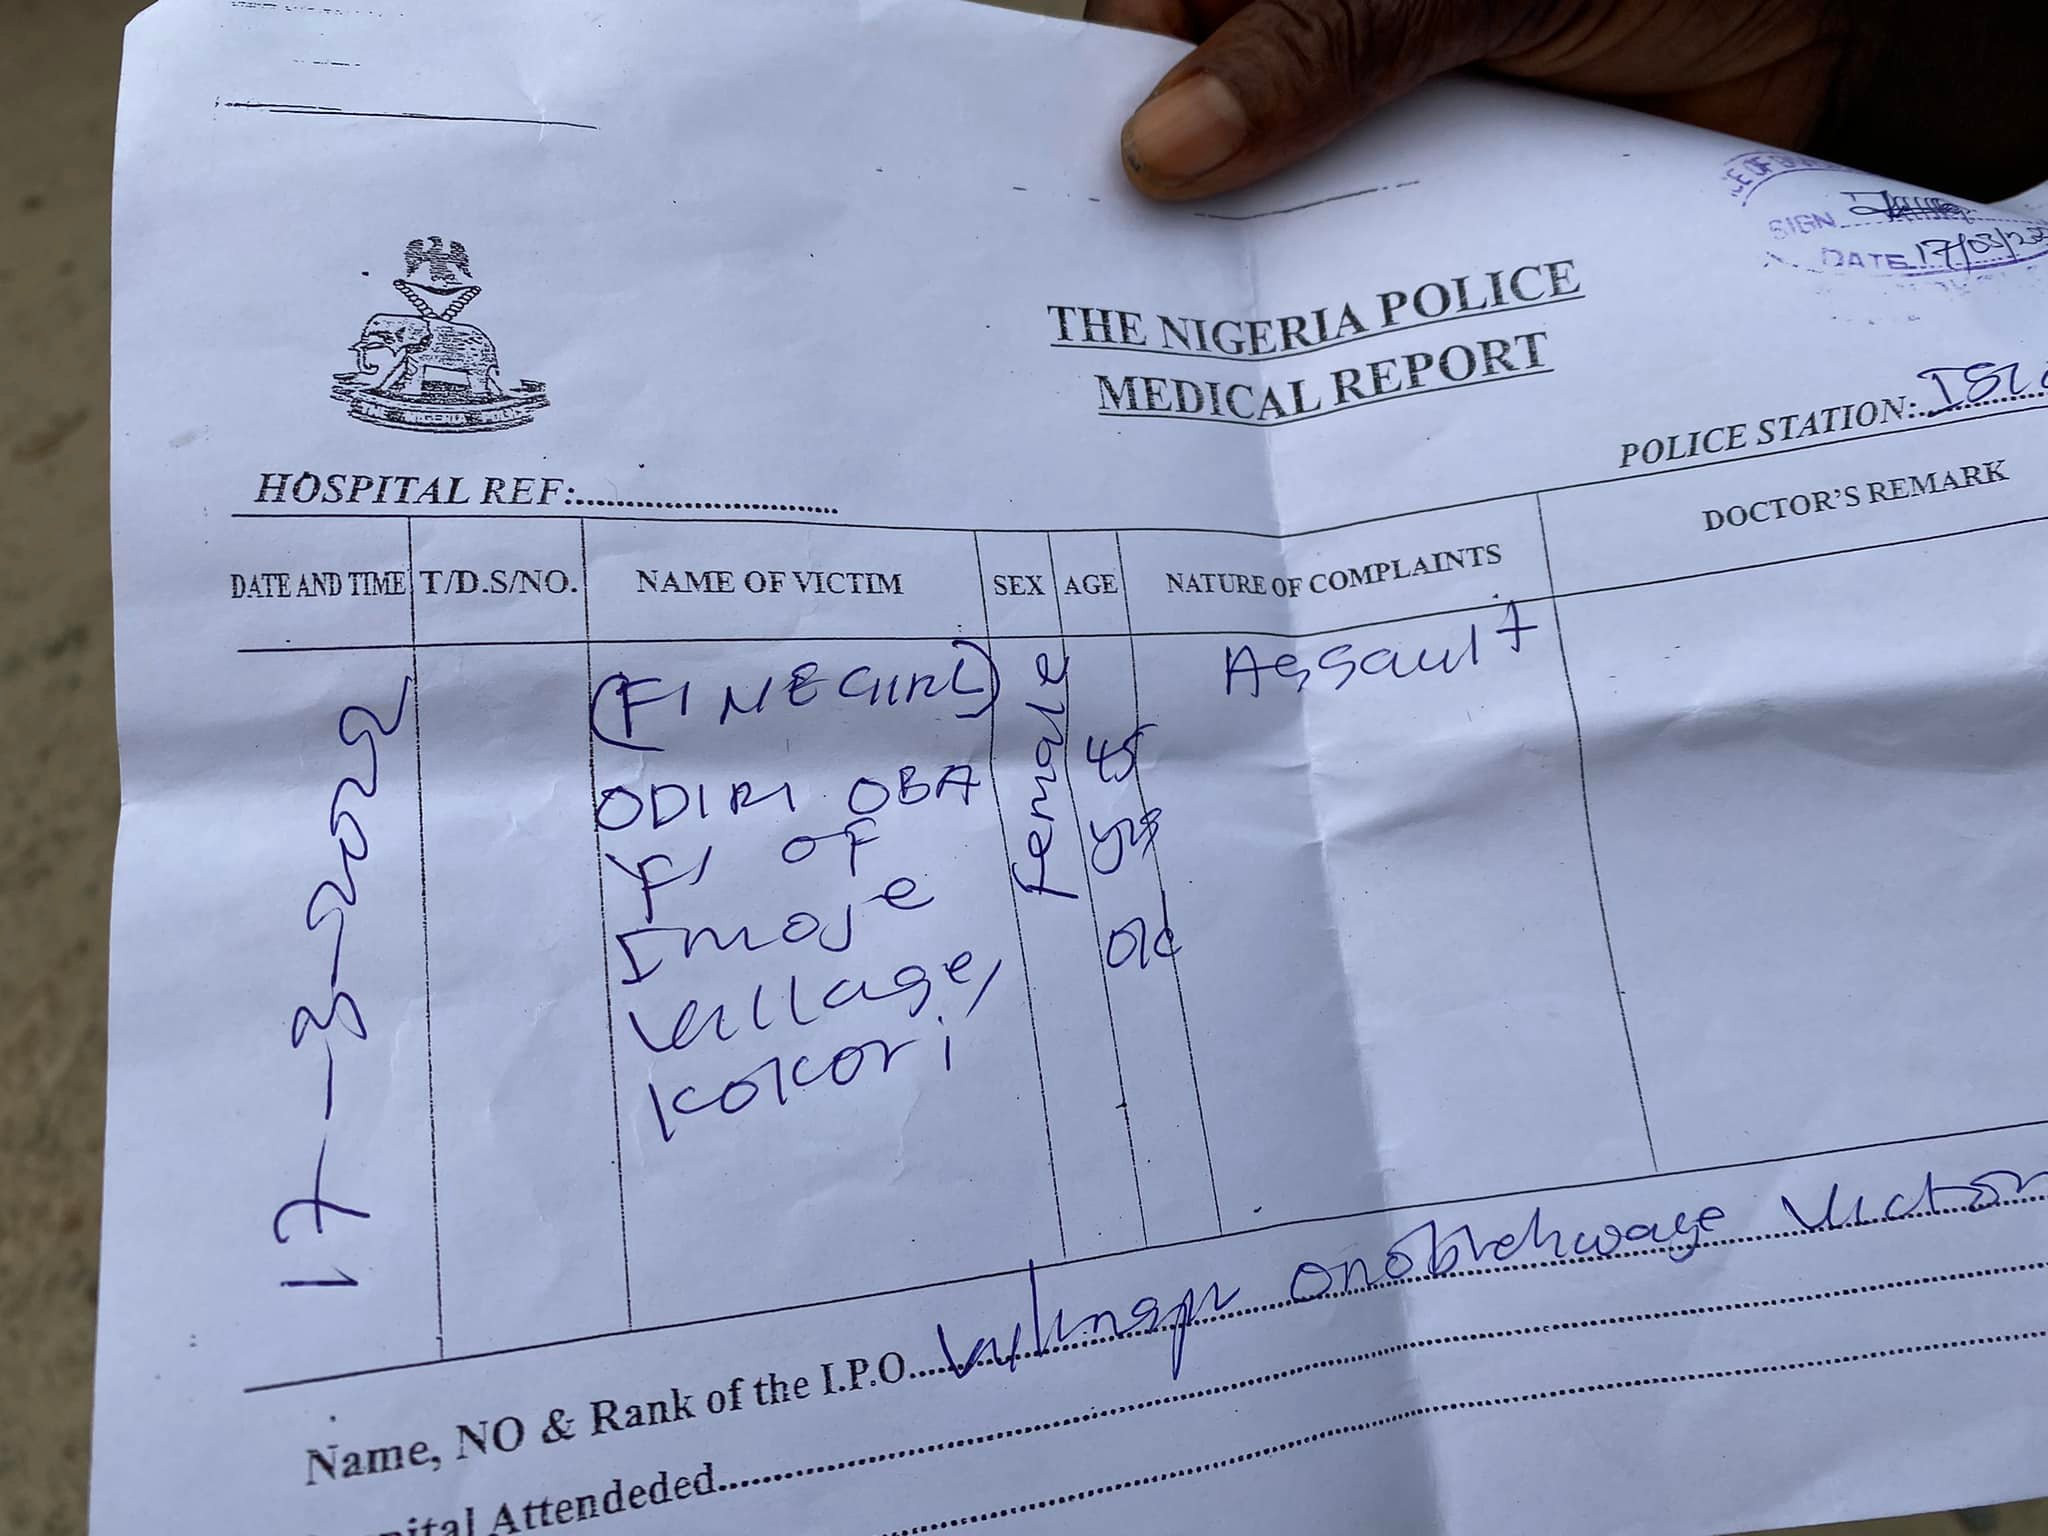 SIGN
DATE 17/03/22
THE NIGERIA POLICE
MEDICAL REPORT
POLICE STATION:
HOSPITAL REF:
DATE AND TIME T/D.S/NO. NAME OF VICTIM SEX AGE NATURE OF COMPLAINTS DOCTOR'S REMARK
17-3-2022
(FINEGIRL)
ODIRI OBA
'F' OF
Imoje
Village,
Kokori
female
45
yrs
old
Assault
Name, NO & Rank of the I.P.O. Onobrehwaye Victor
Attendeded